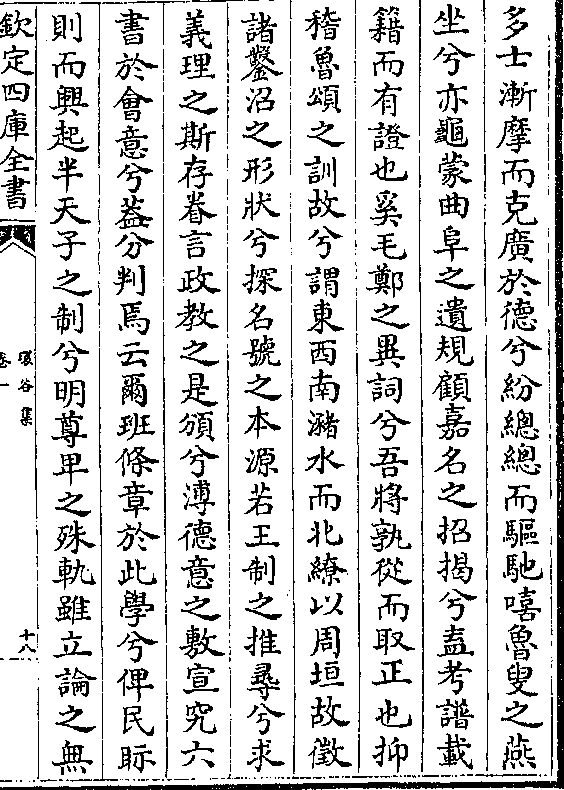 多士漸摩而克廣於德兮紛總總而驅馳嘻魯叟之燕
坐兮亦龜蒙曲阜之遺規顧嘉名之招揭兮盍考譜載
籍而有證也奚毛鄭之異詞兮吾將孰從而取正也抑
稽魯頌之訓故兮謂東西南瀦水而北繚以周垣故徵
諸鑿沼之形狀兮探名號之本源若王制之推尋兮求
義理之斯存眷言政教之是頒兮溥德意之敷宣究六
書於會意兮葢分判焉云爾班條章於此學兮俾民眎
則而興起半天子之制兮明尊卑之殊軌雖立論之無
欽定四庫全書
環谷集
卷一
十八